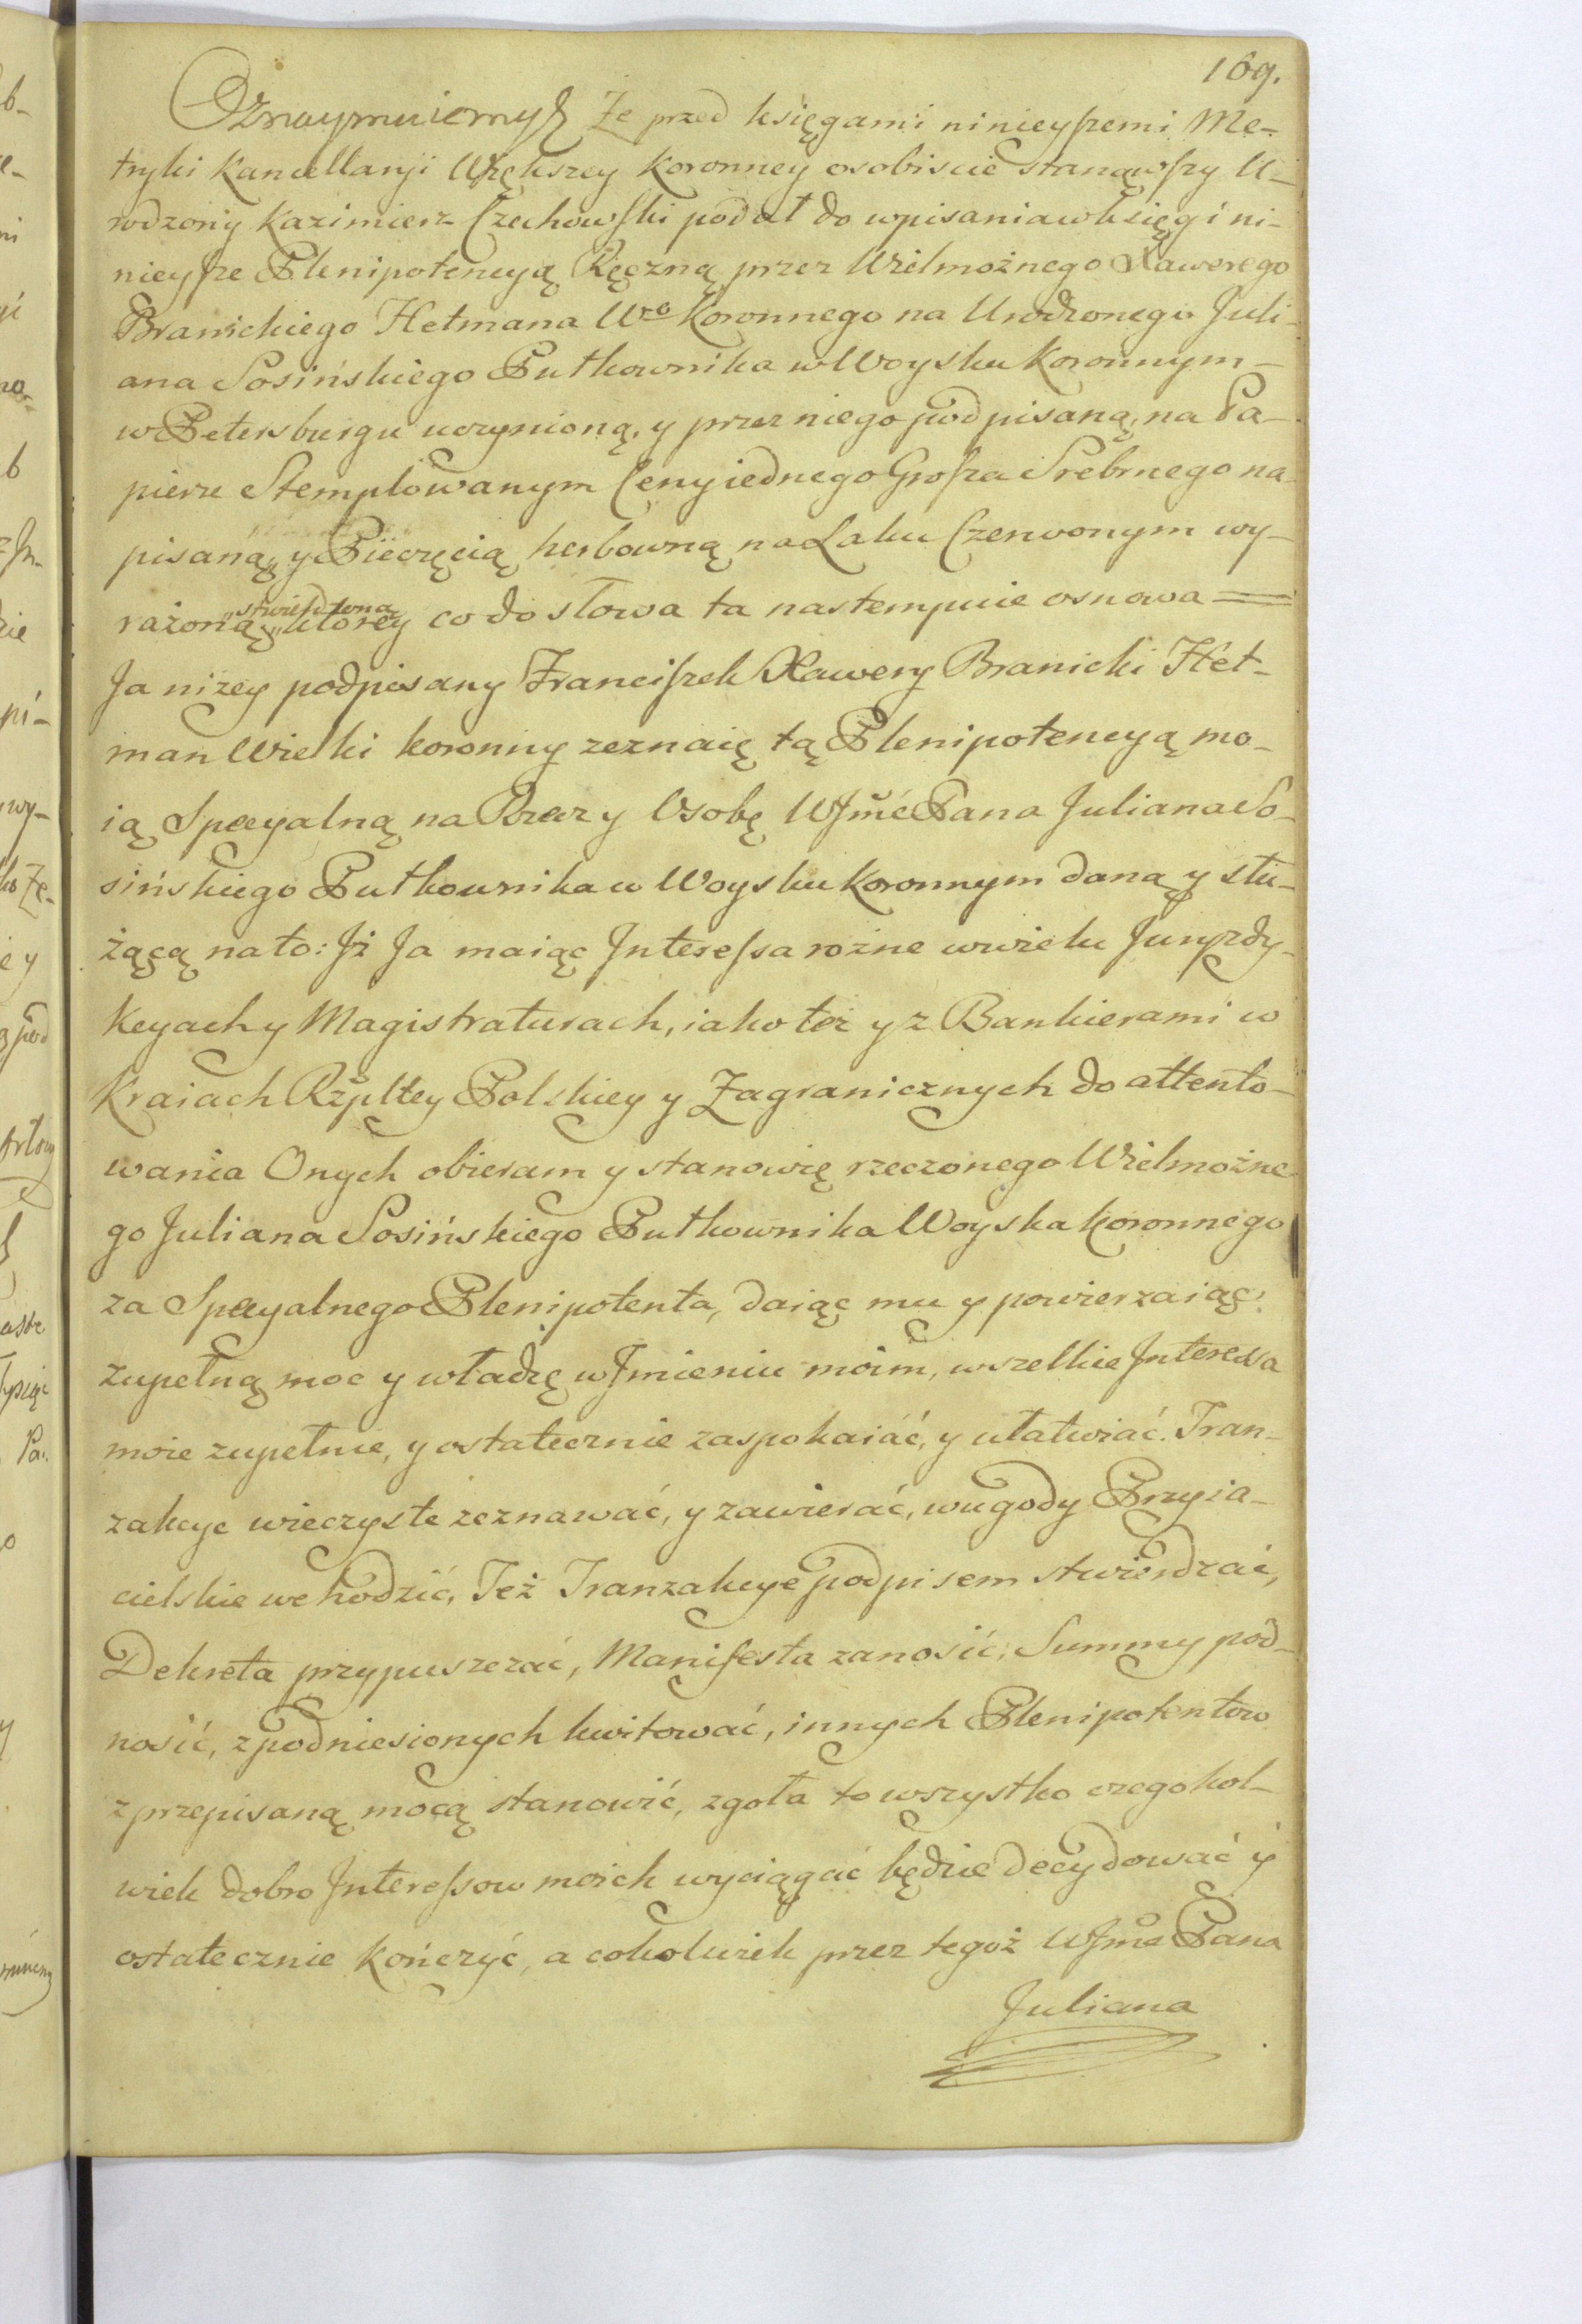 169.
Oznaymuiemyż Że przed księgami ninieyszemi Me-
tryki Kancellaryi Większey Koronney osobiscie stanąwszy U-
rodzony Kazimierz Czechowski podał do wpisania w księgi ni-
nieysze Plenipotencyą Ręczną przez Wielmożnego Xawerego
Branickiego Hetmana Wgo Koronnego na Urodzonego Juli-
ana Sosińskiego Pułkownika w Woysku Koronnym -
w Petersburgu uczynioną, y przez niego podpisaną, na Pa-
pierze Stemplowanym Ceny iednego Grosza Srebrnego na-
pisaną, y Pieczęcią herbowną na Laku Czerwonym wy-
rażoną „stwierdzoną„ ktorey co do słowa ta nastempuie osnowa =
Ja niżey podpisany Franciszek Xawery Branicki Het-
man Wielki koronny zeznaię tą Plenipotencyą mo-
ią Specyalną na Rzecz y Osobę WJmć Pana Juliana So-
sińskiego Pułkownika w Woysku Koronnym daną y słu-
żącą na to: Jż Ja maiąc Interessa rożne w wielu Juryzdy-
kcyach y Magistraturach, iako też y z Bankierami w
Kraiach Rzpltey Polskiey y Zagranicznych do attento-
wania Onych obieram y stanowię rzeczonego Wielmożne
go Juliana Sosińskiego Pułkownika Woyska Koronnego
za Specyalnego Plenipotenta, daiąc mu y powierzaiąc
zupełną moc y władzę w Jmieniu moim, wszelkie Interessa
moie zupełnie, y ostatecznie zaspokaiáć, y ułatwiać. Tran-
zakcye wieczyste zeznawać, y zawierać, w ugody Przyia-
cielskie wchodzić, Też Tranzakcye podpisem stwierdzać,
Dekreta przypuszczać, Manifesta zanosić, Summy pod-
nosić, z podniesionych kwitować, innych Plenipotentow
z przepisaną mocą stanowić, zgoła to wszystko czegokol-
wiek dobro Interessow moich wyciągać będzie decydować y
ostatecznie kończyć, a cokolwiek przez tegoż WJmc Pana
Juliana